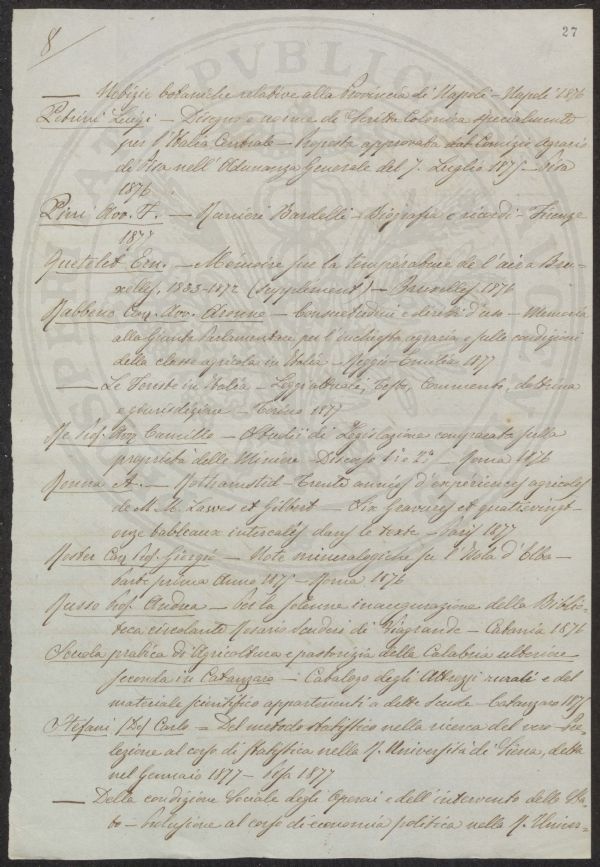 8/ 27
— Notizie botaniche relative alla Provincia di Napoli – Napoli 1876
Petrini Luigi – Disegno e norme di Scritta Colonica specialmente
per l'Italia Centrale – Proposta approvata dal Comizio Agrario
di Pisa nell'Adunanza Generale del 7. Luglio 1875 – Pisa
1876
Pini Avv. F. – Ranieri Bardelli – Biografia e ricordi – Firenze
1877
Quetelet Ern. – Mémoire sur la température de l'air à Bru=
xelles, 1833-1872 (supplement) – Bruxelles 1876
Rabbeno Cav. Avv. Aronne – Consuetudini e diritti d'uso – Memoria
alla Giunta Parlamentare per l'inchiesta agraria e sulle condizioni
della classe agricola in Italia – Reggio-Emilia 1877
— Le Foreste in Italia – Leggi attuali, Testo, Commenti, dottrina
e giurisdizione – Torino 1877
Re Prof. Avv. Camillo – Studii di Legislazione comparata sulla
proprietà delle Miniere – Discorso 1° e 2° – Roma 1876
Ronna A. – Rothamsted – Trente années d'expériences agricoles
de M. M. Lawes et Gilbert – Six Gravures et quatrevingt-
onze tableaux intercalés dans le texte – Paris 1877
Roster Cav. Prof. Giorgio – Note mineralogiche su l'Isola d'Elba –
parte prima Anno 1875 – Roma 1876
Russo Prof. Andrea – Per la solenne inaugurazione della Biblio=
teca circolante Rosario Scuderi di Viagrande – Catania 1876
Scuola pratica di Agricoltura e pastorizia della Calabria ulteriore
seconda in Catanzaro – Catalogo degli Attrezzi rurali e del
materiale scientifico appartenenti a detta Scuola – Catanzaro 1875
Stefani (De) Carlo – Del metodo statistico nella ricerca del vero – Pre
lezione al corso di statistica nella R. Università di Siena, detta
nel Gennaio 1877 – Pisa 1877
— Della condizione Sociale degli Operai e dell'intervento dello Sta=
to – Prolusione al corso di economia politica nella R. Univer=